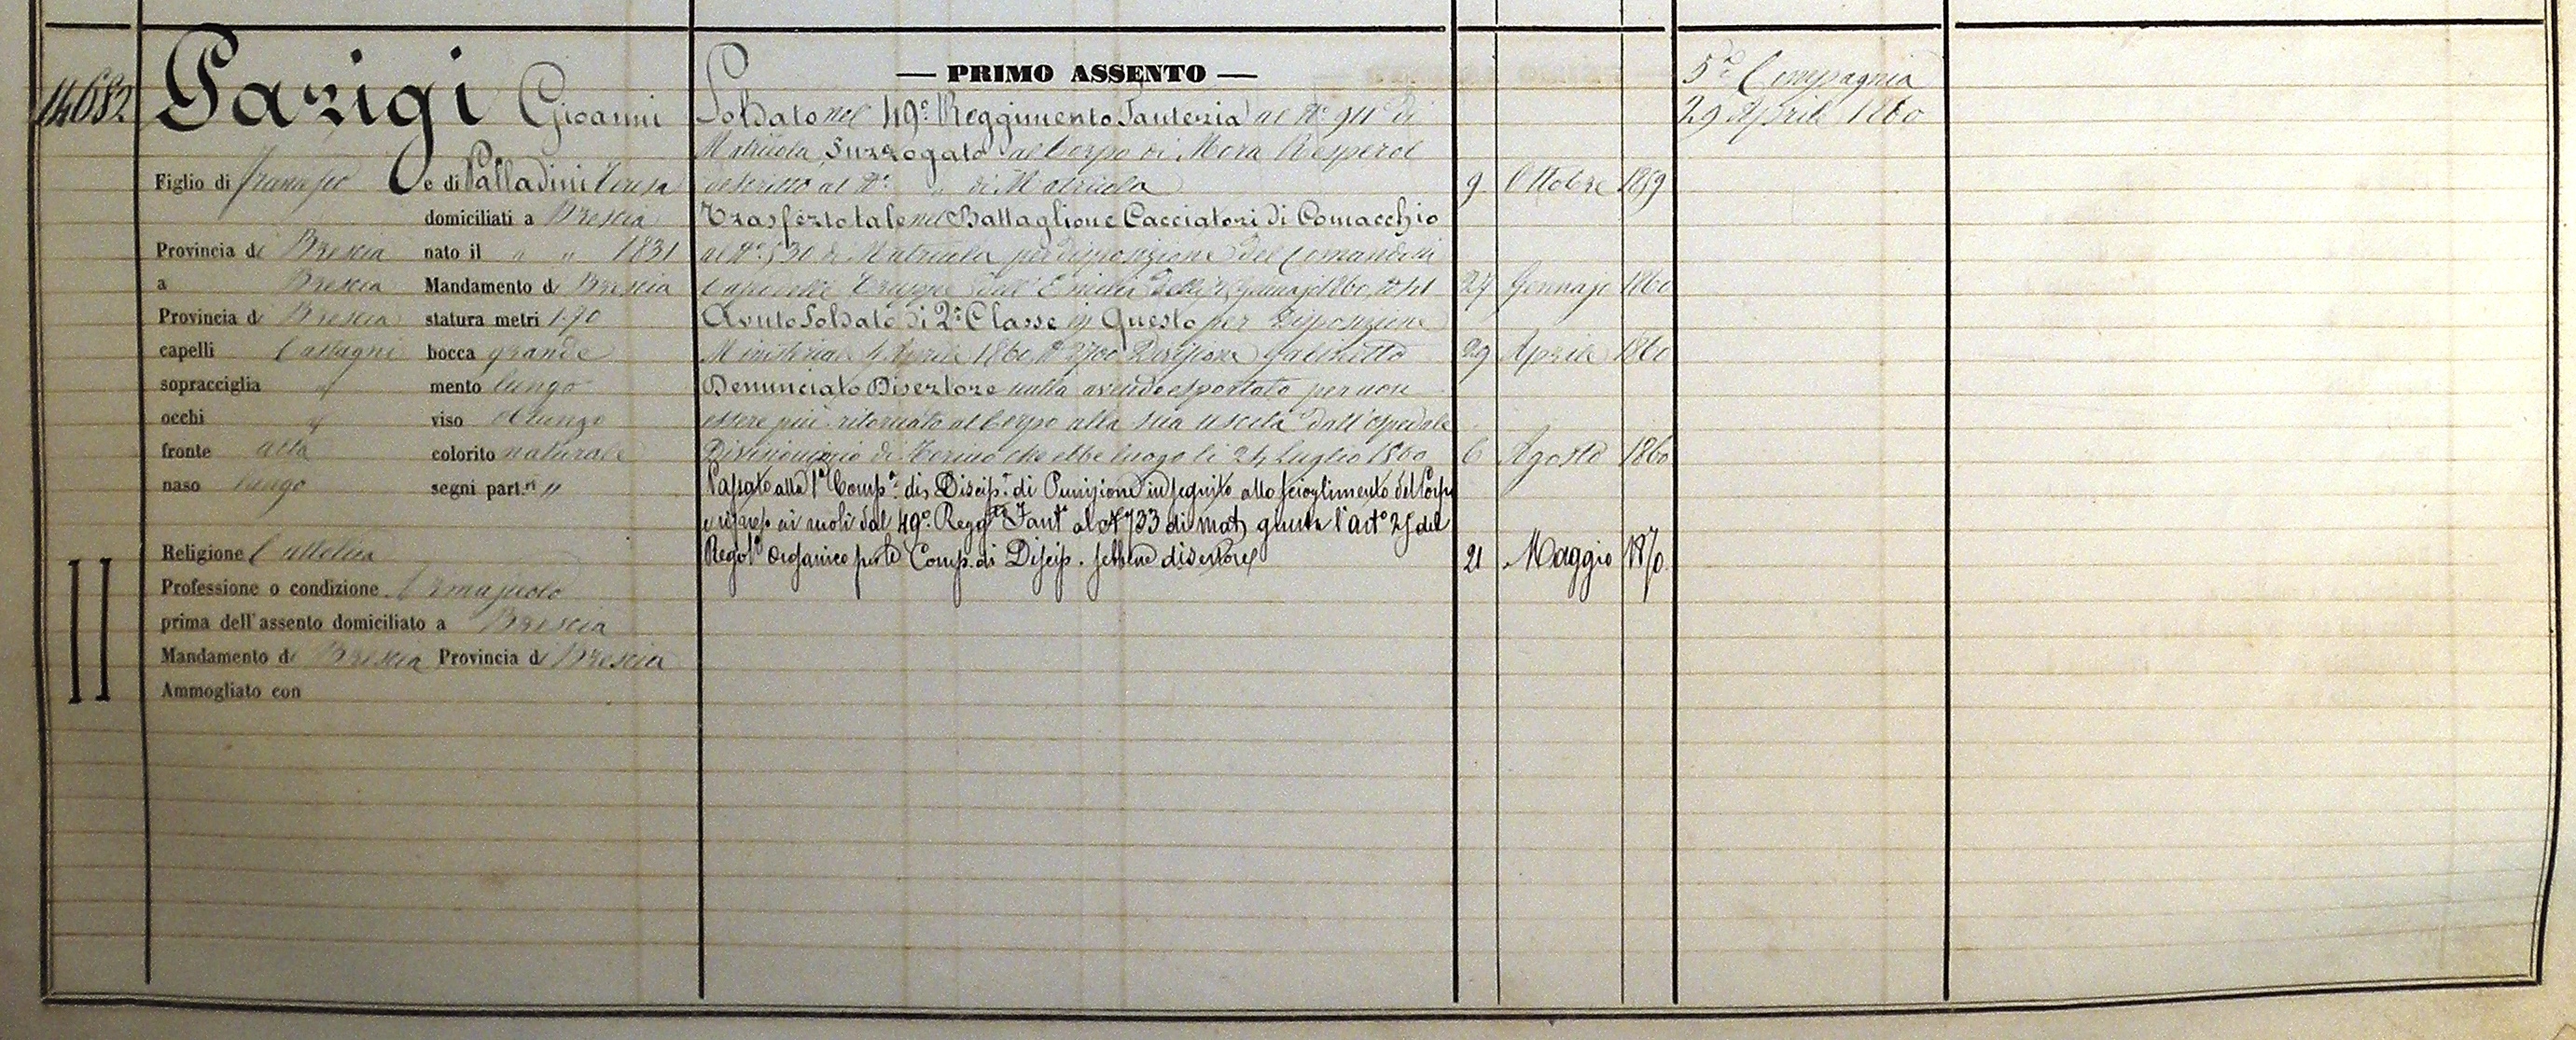 PRIMO ASSENTO
14682 Parigi Gioanni
Figlio di Francesco e di Palladini Teresa
domiciliati a Brescia
Provincia di Brescia nato il " " 1831
a Brescia Mandamento di Brescia
Provincia di Brescia statura metri 1.70
capelli Castagni bocca grande
sopracciglia " mento lungo
occhi " viso oblungo
fronte alta colorito naturale
naso lungo segni part.ri "
Religione Cattolica
Professione o condizione Armajuolo
prima dell'assento domiciliato a Brescia
Mandamento di Brescia Provincia di Brescia
Ammogliato con
Soldato nel 49º Reggimento Fanteria al Nº 911 di
Matricola Surrogato al Corpo di Mora
descritto al Nº " di Matricola 9 Ottobre 1859
Trasferto tale nel Battaglione Cacciatori di Comacchio
al Nº 530 di Matricola per disposizione del Comando in
Capo delle Truppe dell'Emilia 24 Gennajo 1860
Avuto Soldato di 2ª Classe in Questo per Disposizione
Ministeriale 4 Aprile 1860 Nº 2700 Divisione Gabinetto 29 Aprile 1860
Denunciato Disertore nulla avendo esportato per non
essere più ritornato al Corpo alla sua uscita dall'ospedale
Divisionario di Torino che ebbe luogo li 24 Luglio 1860 6 Agosto 1860
Passato alla 1ª Comp.a di Discip.a di Punizione in seguito allo scioglimento del Corpo
ai ruoli dal 49º Regg.to Fant.a al Nº 733 di mat. giusta l'art.o 25 del
Regol.o Organico per le Comp. di Discip. sebbene disertore 21 Maggio 1870
5ª Compagnia
29 Aprile 1860